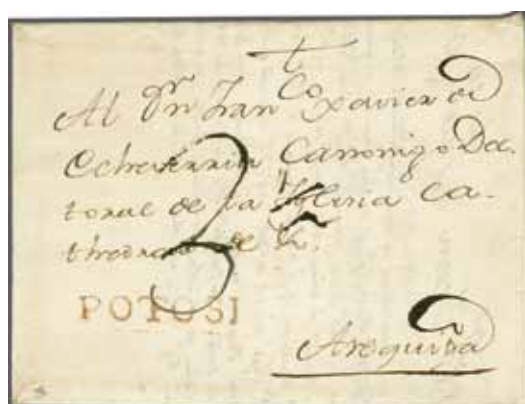 Al Dn Franco Xavier de
Echeverria Canonigo Doc-
toral de la Yglesia Ca-
thredral de
3
POTOSI
Arequipa